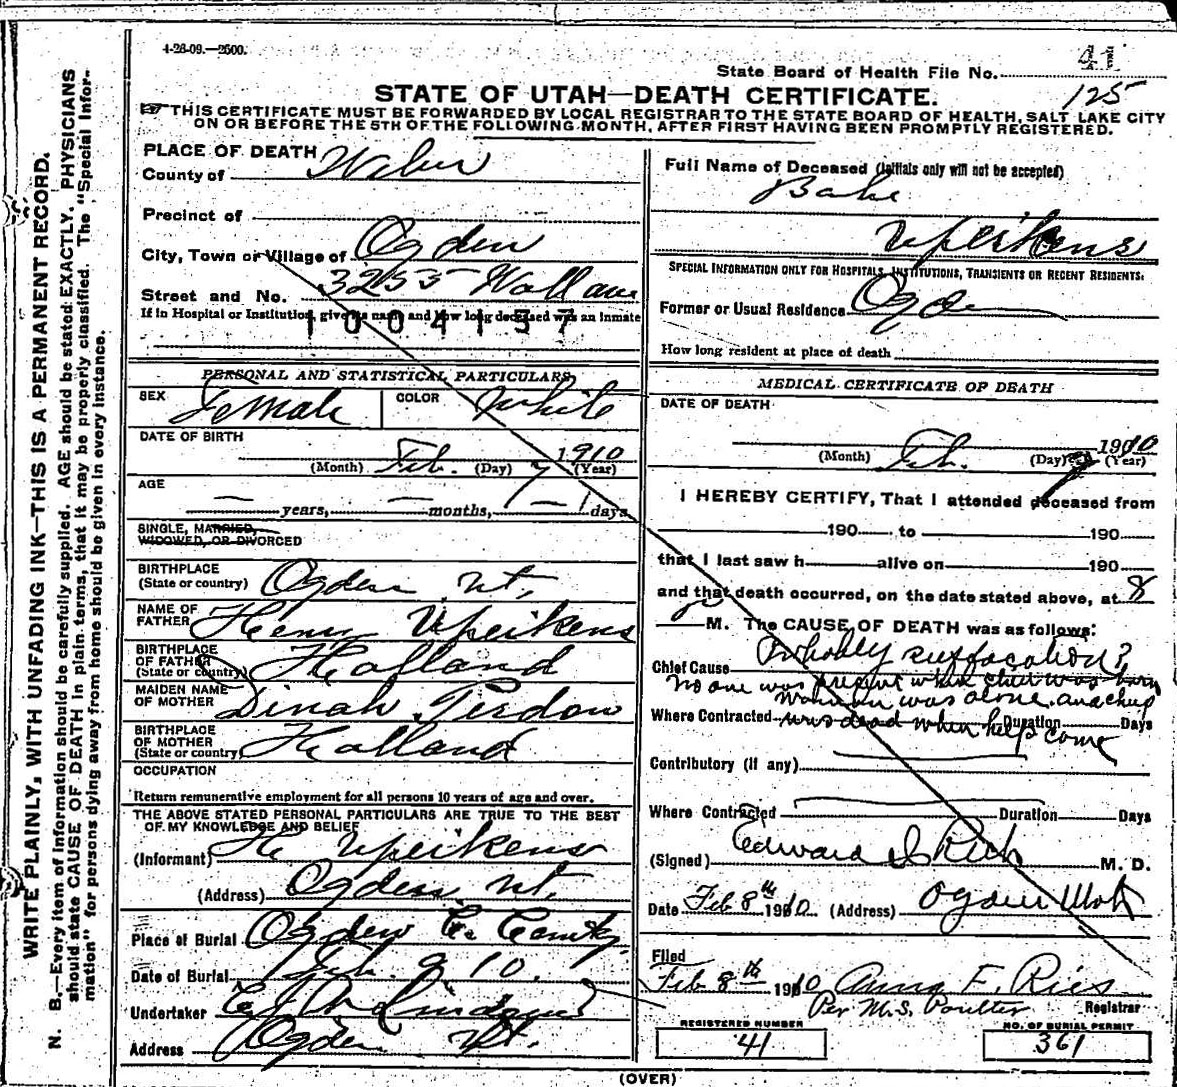 4-26-09.—2500.
State Board of Health File No. 41
125
STATE OF UTAH—DEATH CERTIFICATE.
THIS CERTIFICATE MUST BE FORWARDED BY LOCAL REGISTRAR TO THE STATE BOARD OF HEALTH, SALT LAKE CITY
ON OR BEFORE THE 5TH OF THE FOLLOWING MONTH, AFTER FIRST HAVING BEEN PROMPTLY REGISTERED.
WRITE PLAINLY, WITH UNFADING INK—THIS IS A PERMANENT RECORD.
N. B.—Every item of information should be carefully supplied. AGE should be stated EXACTLY. PHYSICIANS
should state CAUSE OF DEATH in plain terms, that it may be properly classified. The "Special Infor-
mation" for persons dying away from home should be given in every instance.
PLACE OF DEATH
County of Weber
Precinct of
City, Town or Village of Ogden
Street and No. 3255 Wall ave
If in Hospital or Institution, give its name and how long deceased was an inmate
1004137
PERSONAL AND STATISTICAL PARTICULARS
SEX Female COLOR White
DATE OF BIRTH
(Month) Feb. (Day) 7 1910 (Year)
AGE
— years, — months, — 1 days
SINGLE, MARRIED,
WIDOWED, OR DIVORCED
BIRTHPLACE
(State or country) Ogden Ut.
NAME OF
FATHER Henry Upeikens
BIRTHPLACE
OF FATHER
(State or country) Holland
MAIDEN NAME
OF MOTHER Dinah Perdow
BIRTHPLACE
OF MOTHER
(State or country) Holland
OCCUPATION
Return remunerative employment for all persons 10 years of age and over.
THE ABOVE STATED PERSONAL PARTICULARS ARE TRUE TO THE BEST
OF MY KNOWLEDGE AND BELIEF
(Informant) He Upeikens
(Address) Ogden Ut.
Place of Burial Ogden C.
Date of Burial Feb. 9 10.
Undertaker
Address Ogden Ut.
Full Name of Deceased (Initials only will not be accepted)
Babe
Upeikens
SPECIAL INFORMATION ONLY FOR HOSPITALS, INSTITUTIONS, TRANSIENTS OR RECENT RESIDENTS.
Former or Usual Residence Ogden
How long resident at place of death
MEDICAL CERTIFICATE OF DEATH
DATE OF DEATH
(Month) Feb. (Day) 1910 (Year)
I HEREBY CERTIFY, That I attended deceased from
190 to 190
that I last saw h alive on 190
and that death occurred, on the date stated above, at 8
M. The CAUSE OF DEATH was as follows:
Chief Cause Probably suffocation?
No one was present when child was born
woman was alone and child
Where Contracted was dead when help come Duration Days
Contributory (if any)
Where Contracted Duration Days
(Signed) Edward I Rich M. D.
Date Feb 8th 1910 (Address) Ogden Utah
Filed
Feb 8th 1910 Anna F. Ries
Per M.S. Poulter Registrar
REGISTERED NUMBER
41
NO. OF BURIAL PERMIT
361
(OVER)